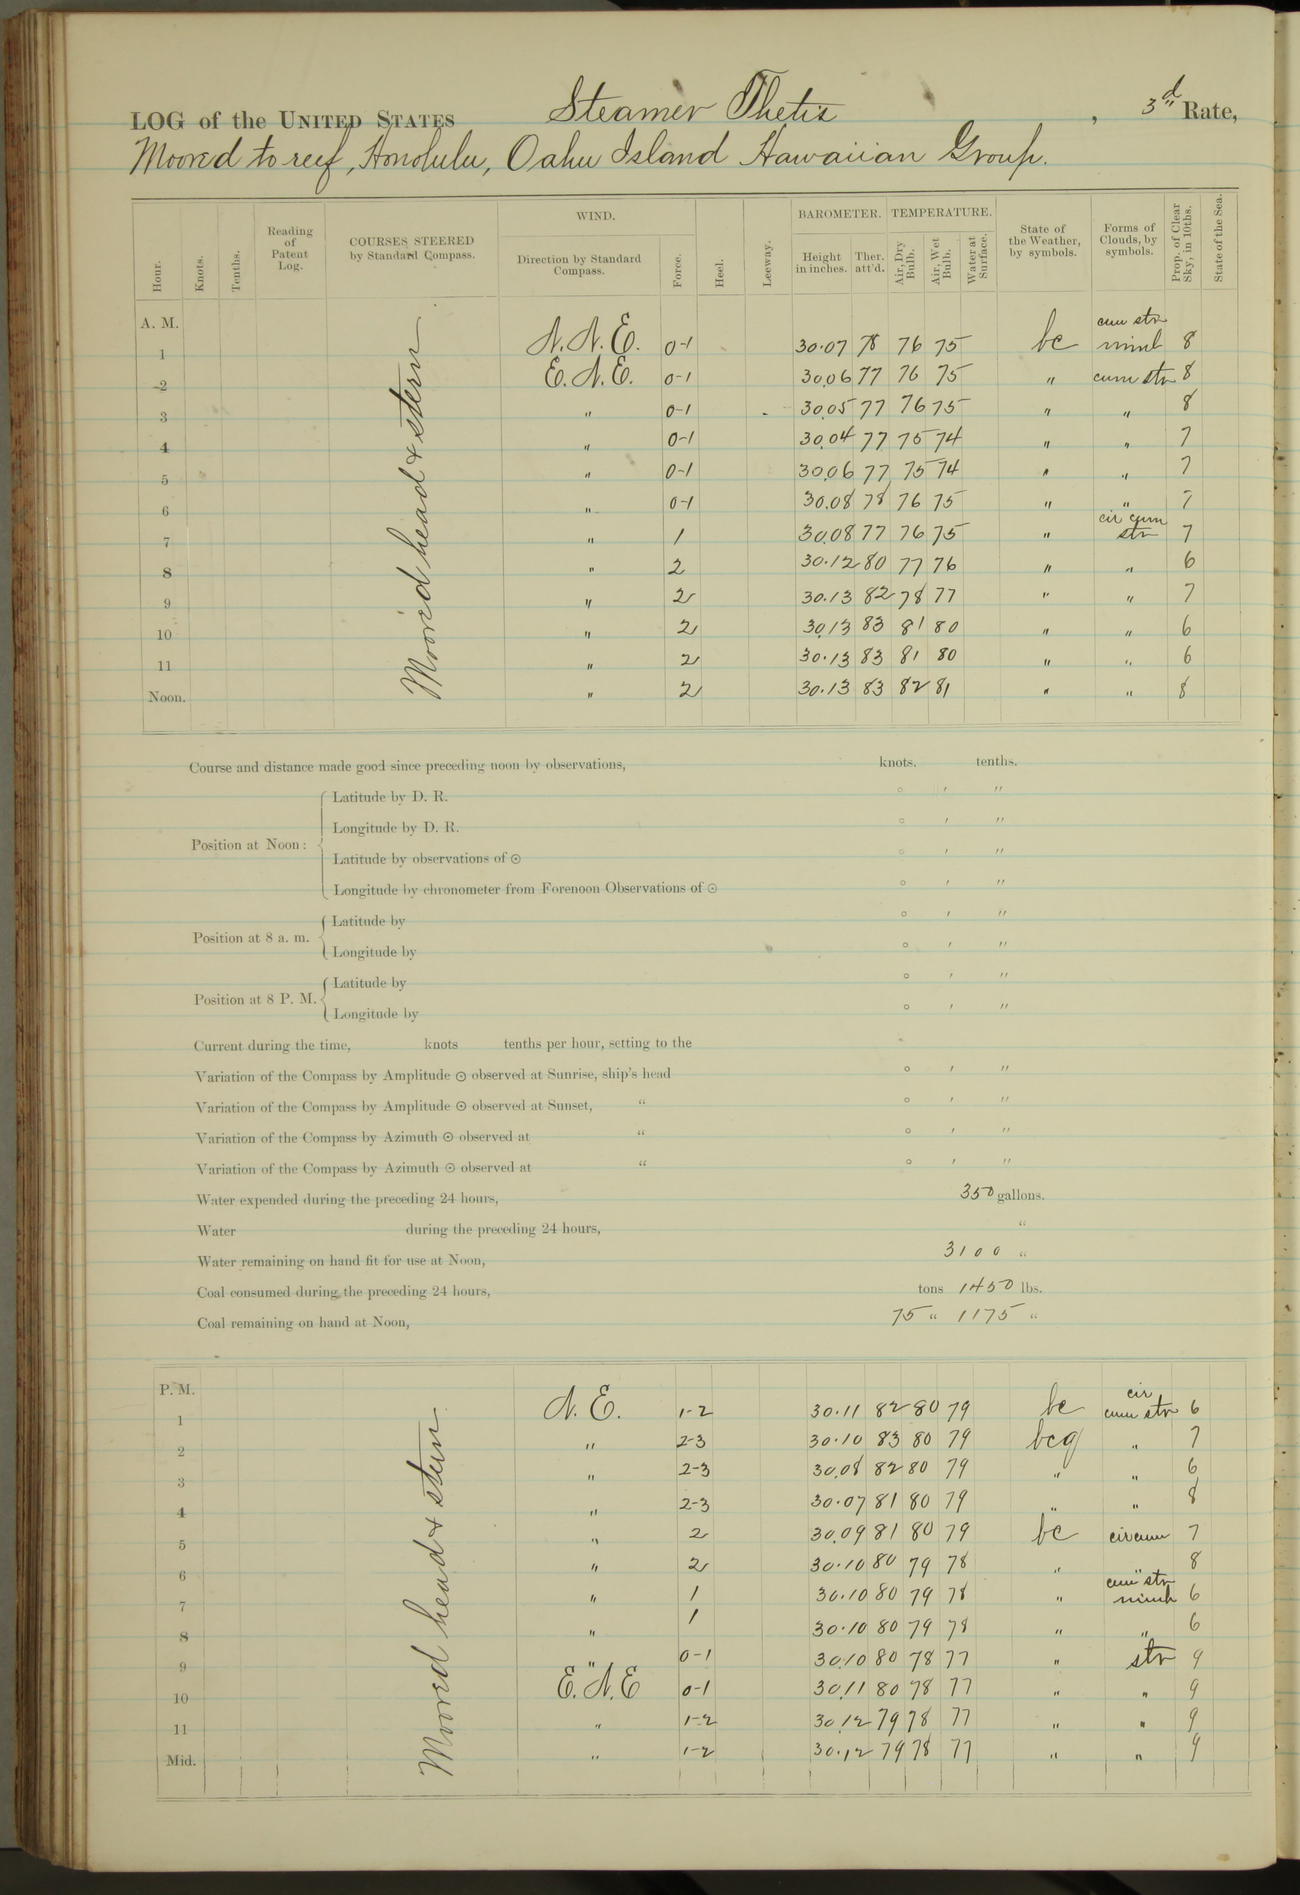 LOG of the UNITED STATES Steamer Thetis, 3d Rate,
Moored to reef, Honolulu, Oahu Island Hawaiian Group.
Hour. Knots. Tenths. Reading of Patent Log. COURSES STEERED by Standard Compass. WIND. Direction by Standard Compass. Force. Heel. Leeway. BAROMETER. Height in inches. Ther. att'd. TEMPERATURE. Air, Dry Bulb. Air, Wet Bulb. Water at Surface. State of the Weather, by symbols. Forms of Clouds, by symbols. Prop. of Clear Sky, in 10ths. State of the Sea.
A. M. Moored head & stern cum str
1 N.N.E. 0-1 30.07 78 76 75 bc nimb 8
2 E.N.E. 0-1 30.06 77 76 75 " cum str 8
3 " 0-1 30.05 77 76 75 " " 8
4 " 0-1 30.04 77 75 74 " " 7
5 " 0-1 30.06 77 75 74 " " 7
6 " 0-1 30.08 78 76 75 " " 7
cir cum
7 " 1 30.08 77 76 75 " str 7
8 " 2 30.12 80 77 76 " " 6
9 " 2 30.13 82 78 77 " " 7
10 " 2 30.13 83 81 80 " " 6
11 " 2 30.13 83 81 80 " " 6
Noon. " 2 30.13 83 82 81 " " 8
Course and distance made good since preceding noon by observations, knots. tenths.
Position at Noon: Latitude by D. R. ° ′ ″
Longitude by D. R. ° ′ ″
Latitude by observations of ⊙ ° ′ ″
Longitude by chronometer from Forenoon Observations of ⊙ ° ′ ″
Position at 8 a. m. Latitude by ° ′ ″
Longitude by ° ′ ″
Position at 8 P. M. Latitude by ° ′ ″
Longitude by ° ′ ″
Current during the time, knots tenths per hour, setting to the
Variation of the Compass by Amplitude ⊙ observed at Sunrise, ship's head ° ′ ″
Variation of the Compass by Amplitude ⊙ observed at Sunset, " ° ′ ″
Variation of the Compass by Azimuth ⊙ observed at " ° ′ ″
Variation of the Compass by Azimuth ⊙ observed at " ° ′ ″
Water expended during the preceding 24 hours, 350 gallons.
Water during the preceding 24 hours, "
Water remaining on hand fit for use at Noon, 3100 "
Coal consumed during the preceding 24 hours, tons 1450 lbs.
Coal remaining on hand at Noon, 75 " 1175 "
P. M. Moored head & stern cir
1 N.E. 1-2 30.11 82 80 79 bc cum str 6
2 " 2-3 30.10 83 80 79 bcq " 7
3 " 2-3 30.08 82 80 79 " " 6
4 " 2-3 30.07 81 80 79 " " 8
5 " 2 30.09 81 80 79 bc cir cum 7
6 " 2 30.10 80 79 78 " " 8
cum str
7 " 1 30.10 80 79 78 " nimb 6
8 " 1 30.10 80 79 78 " " 6
9 " 0-1 30.10 80 78 77 " str 9
10 E.N.E 0-1 30.11 80 78 77 " " 9
11 " 1-2 30.12 79 78 77 " " 9
Mid. " 1-2 30.12 79 78 77 " " 9